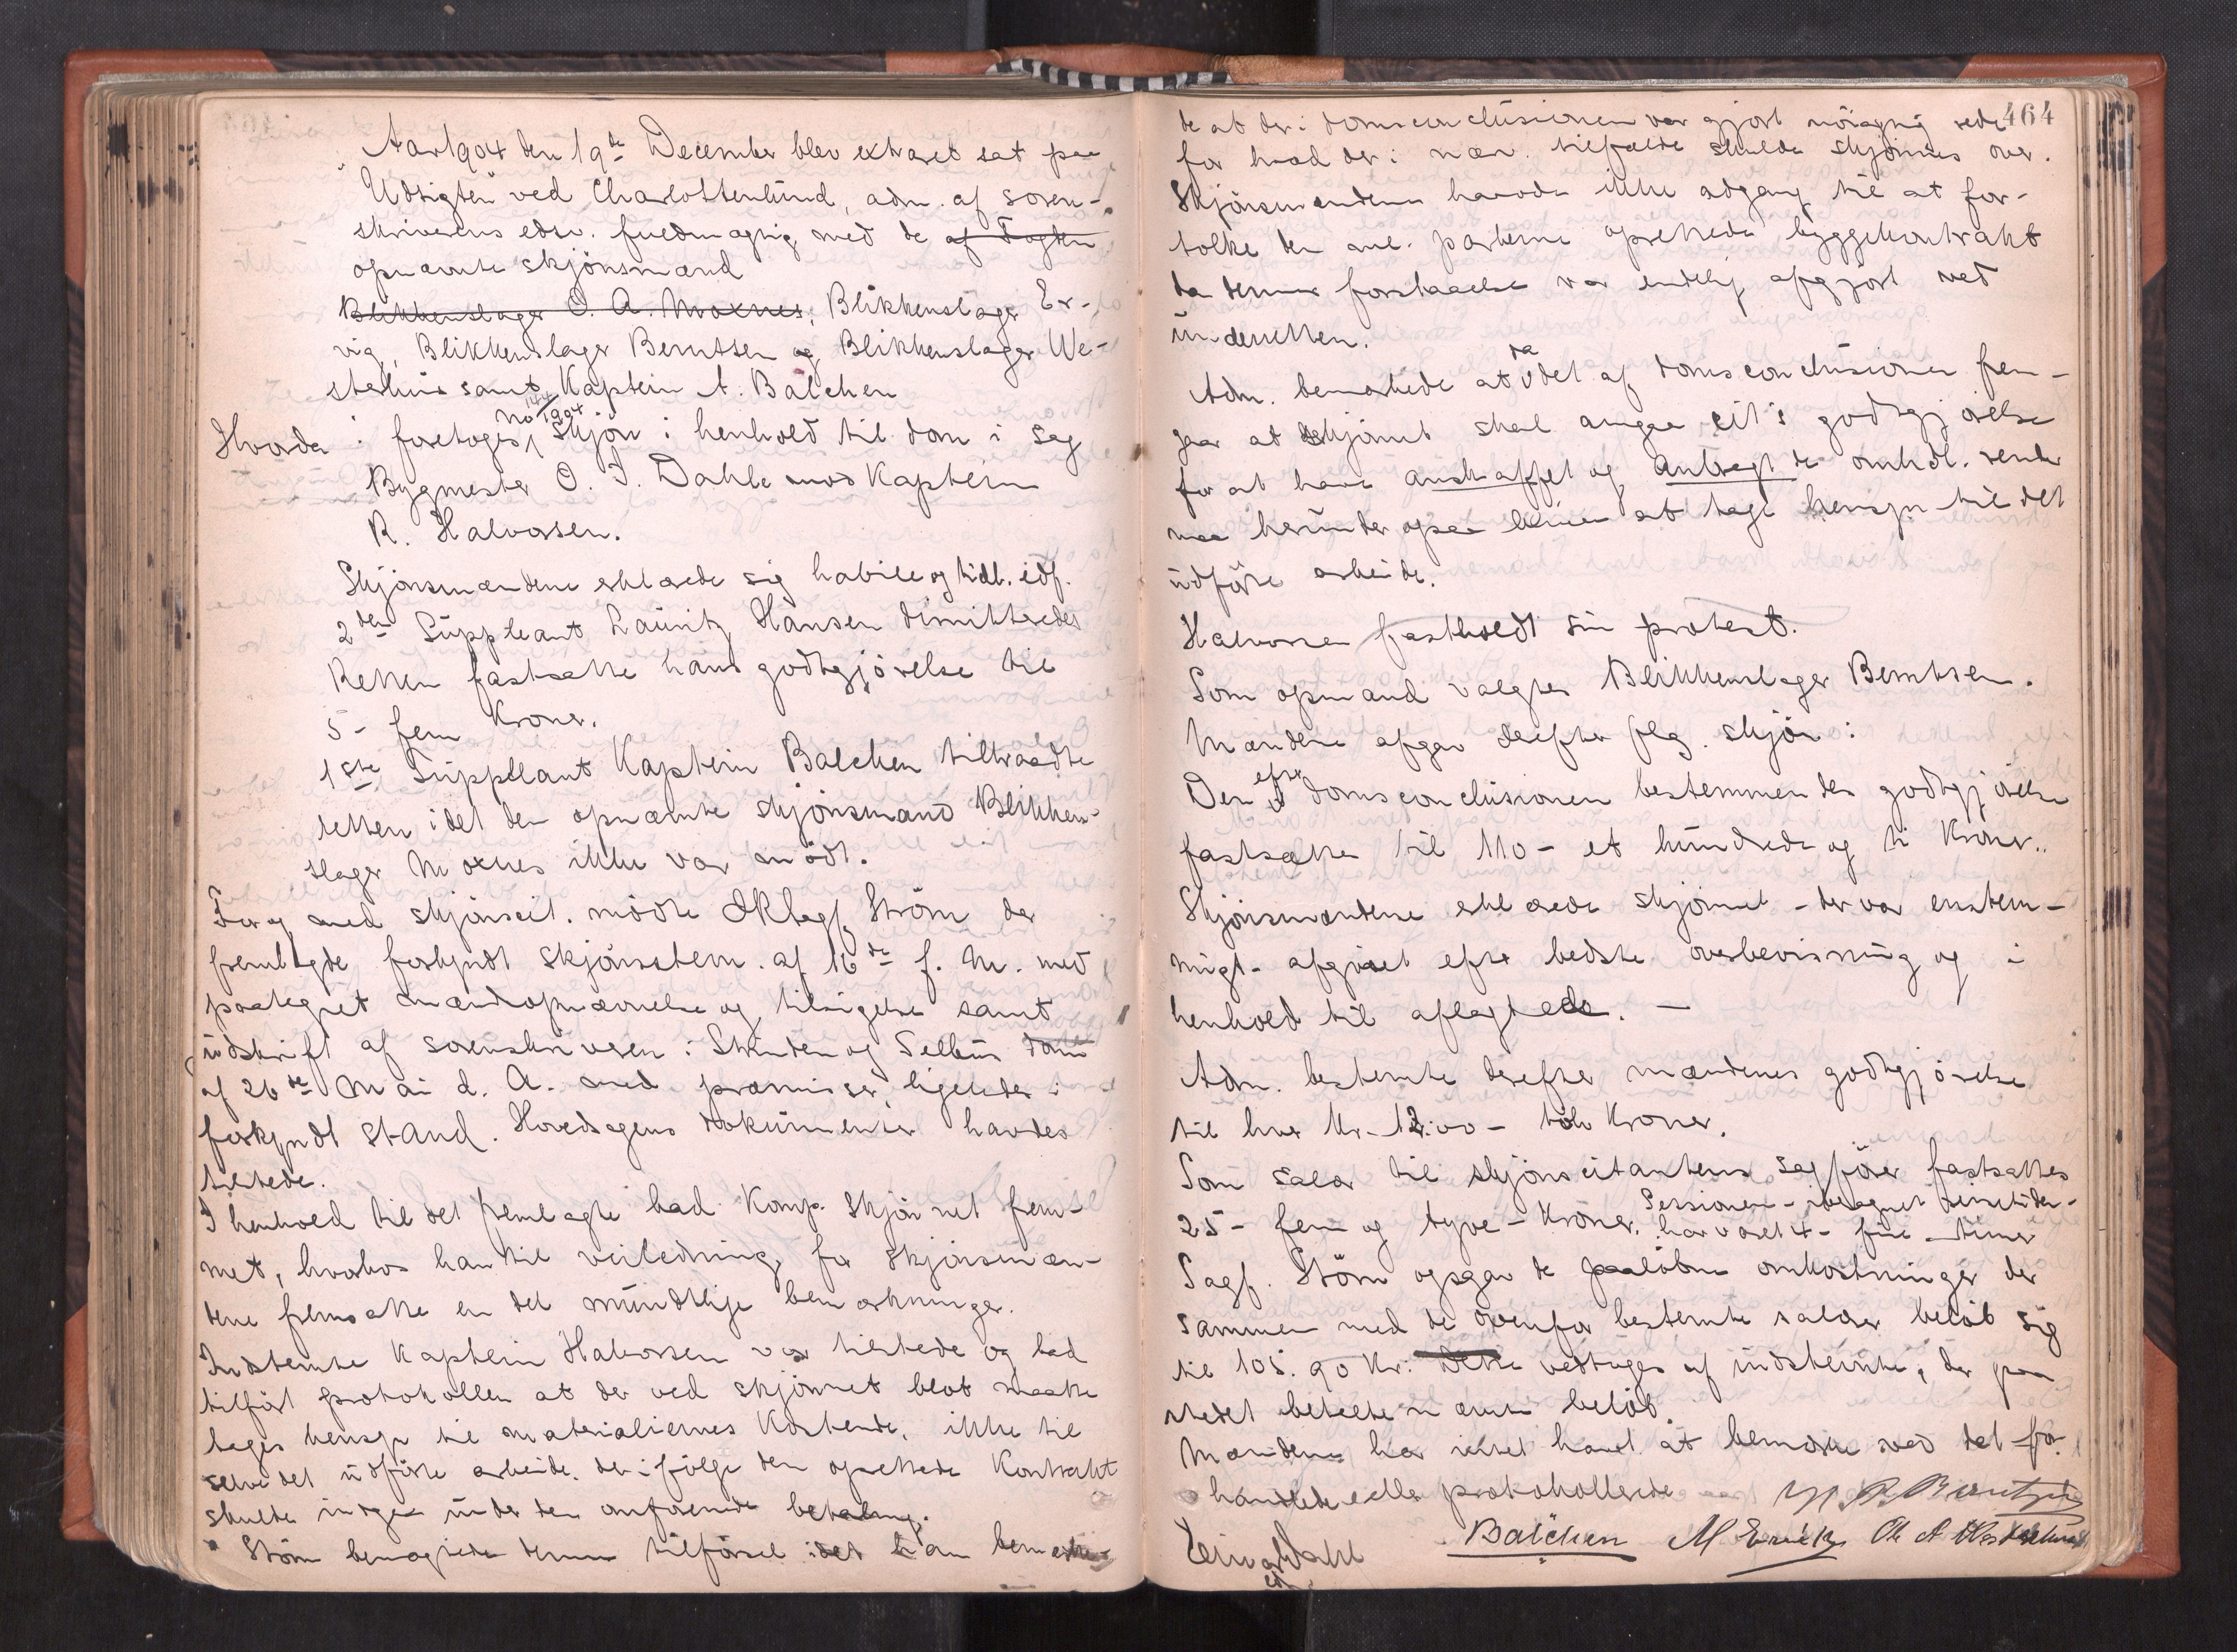 Aar 1904 den 19de December blev extraret sat paa
"Udsigten" ved Charlottenlund, adm. af soren-
skriverens edsv. fuldmægtig med de af Fogden
opnævnte skjönsmænd
Blikkenslager O. A. Moxnes, Blikkenslager Er-
vig, Blikkenslager Berntsen og Blikkenslager We-
sterhus samt Kaptein A. Balchen
No 144/1904
Hvorda i foretoges skjön i henhold til dom i sag
Bygmester O. J. Dahle mod Kaptein
R. Halvorsen.
Skjönsmændene erklærede sig habile og tidl. edf.
2den Suppleant Lauritz Hansen dimitteredes
Retten fastsatte hans godtgjörelse til
5 - fem Kroner.
1ste Suppleant Kaptein Balchen tiltraadte
retten idet den opnævnte skjönsmand Blikken-
slager Moxnes ikke var mödt.
For og med skjönscit. mödte Sagf. Ström der
fremlagde forkyndt skjönsstevn. af 16de f. M. med
paategnet mændsopnævnelse og tilsigelse samt
udskrift af sorenskriveren i Strinden og Selbus dom
af 26de Mai d. A. med præmisser ligeledes i
forkyndt stand. Hovedsagens dokumenter havdes
tilstede.
I henhold til det fremlagte bad Komp. Skjönnet frem-
met, hvorhos han til veiledning for skjönsmæn-
dene fremsatte en del mundtlige bemærkninger.
Indstevnte Kaptein Halvorsen var tilstede og bad
tilfört protokollen at der ved skjönnet blot maatte
tages hensyn til materialiernes Kostende, ikke til
selve det udförte arbeide, der ifölge den oprettede Kontrakt
skulde indgaa under den omforenede betaling.
Ström benegtede denne tilförsel idet han bemærke-
464
de at der i domsconclusionen var gjort nöiagtig rede
for hvad der i nærv. tilfælde skulde skjönnes over.
Skjönsmændene havde ikke adgang til at for-
tolke den ml. parterne oprettede byggekontrakt
da dennes forstaaelse var endelig afgjort ved
underretten.
Adm. bemærkede at da det af domsconclusionen frem-
gaar at skjönnet skal angaa cit's godtgjörelse
for at have anskaffet og anbragt de omhdl. render
maa herunder ogsaa blive at tage hensyn til det
udförte arbeide.
Halvorsen fastholdt sin protest.
Som opmand valgtes Blikkenslager Berntsen.
Mændene afgav derefter flg. skjön:
Den efter domsconclusionen bestemmendes godtgjörelse
fastsættes til 110 - et hundrede og ti Kroner.
Skjönsmændene erklærede skjönnet - der var enstem-
migt - afgivet efter bedste overbevisning og i
henhold til aflagt ed. -
Adm. bestemte derefter mændenes godtgjörelse
til hver Kr. 12.00 - tolv Kroner.
Som salær til skjönscitantens sagförer fastsattes
25 - fem og tyve - Kroner. Sessionen - iberegnet reisetiden -
har varet 4 - fire - timer
Sagf. Ström opgav de paalöbne omkostninger der
sammen med de ovenfor bestemte salær belöb sig
til 105.90 Kr. Dette vedtoges af indstevnte, der paa
stedet betalte nævnte belöb.
Mændene har intet havt at bemærke ved det for-
handlede eller protokollerede
Balchen M Ervik Ol A Westerhus
Einar Dahl